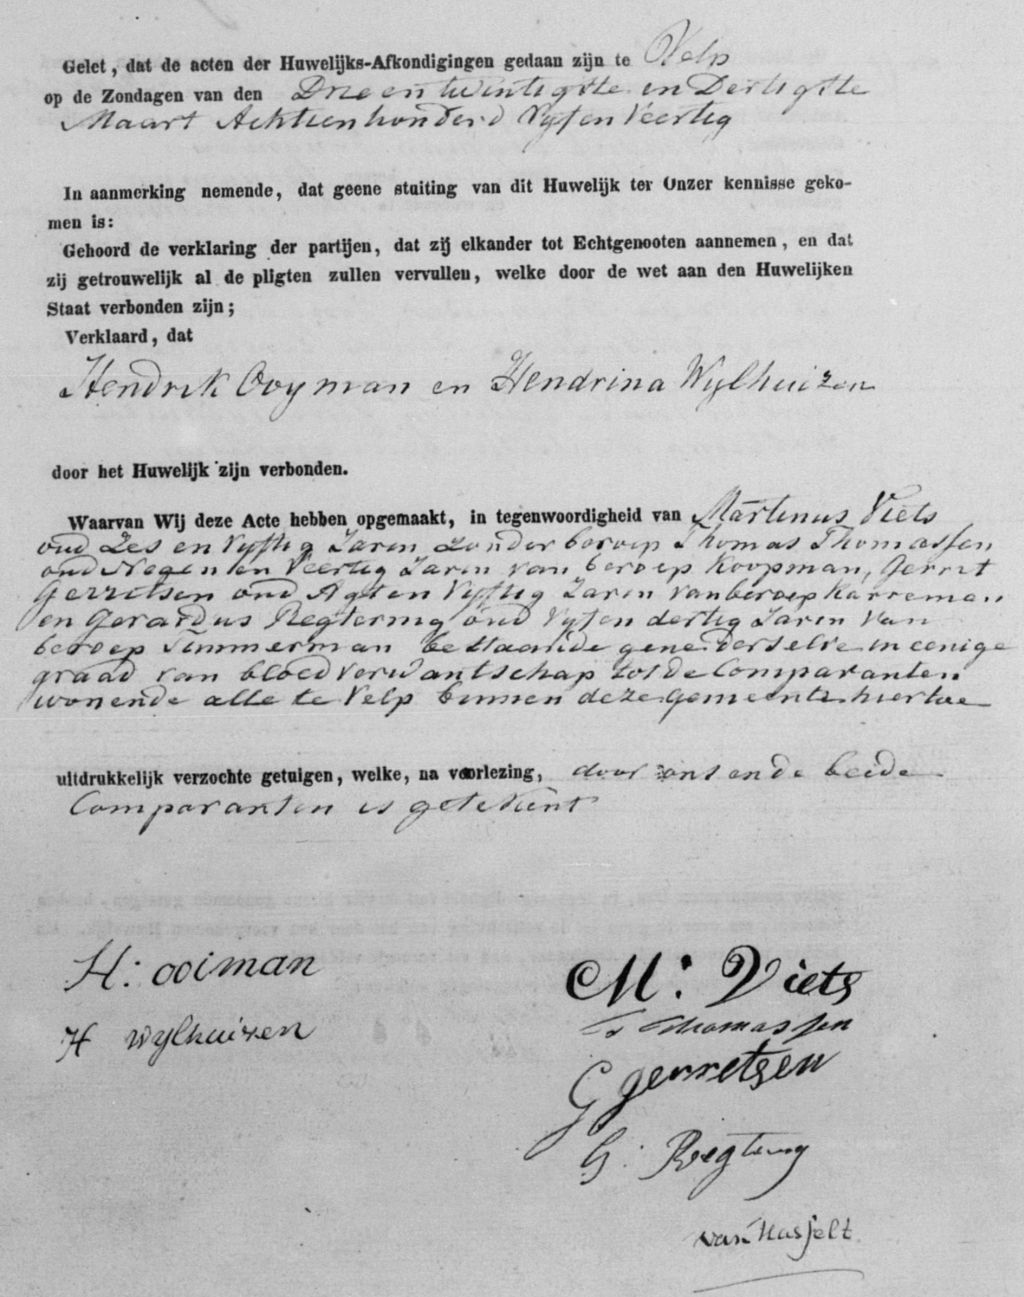 Gelet, dat de acten der Huwelijks-Afkondigingen gedaan zijn te Velp
op de Zondagen van den Drie en twintigste en Dertigste
Maart Achtien honderd Vyf en Veertig
In aanmerking nemende, dat geene stuiting van dit Huwelijk ter Onzer kennisse geko-
men is:
Gehoord de verklaring der partijen, dat zij elkander tot Echtgenooten aannemen, en dat
zij getrouwelijk al de pligten zullen vervullen, welke door de wet aan den Huwelijken
Staat verbonden zijn;
Verklaard, dat
Hendrik Ooyman en Hendrina Wylhuizen
door het Huwelijk zijn verbonden.
Waarvan Wij deze Acte hebben opgemaakt, in tegenwoordigheid van Martinus Viets
oud Zes en Vyftig Jaren zonder beroep Thomas Thomassen
oud Negen en Veertig Jaren van beroep Koopman, Gerrit
Gerretsen oud Agt en Vyftig Jaren van beroep Karreman
en Gerardus Regtering oud Vyf en dertig Jaren Van
beroep Timmerman bestaande gene derselve in eenige
graad van bloedverwantschap tot de Comparanten
wonende alle te Velp binnen deze gemeente hiertoe
uitdrukkelijk verzochte getuigen, welke, na voorlezing, door ons en de beide
Comparanten is getekent
H: ooiman
H wylhuizen
M: Viets
T Thomassen
G gerretsen
G: Regtering
van Hasselt